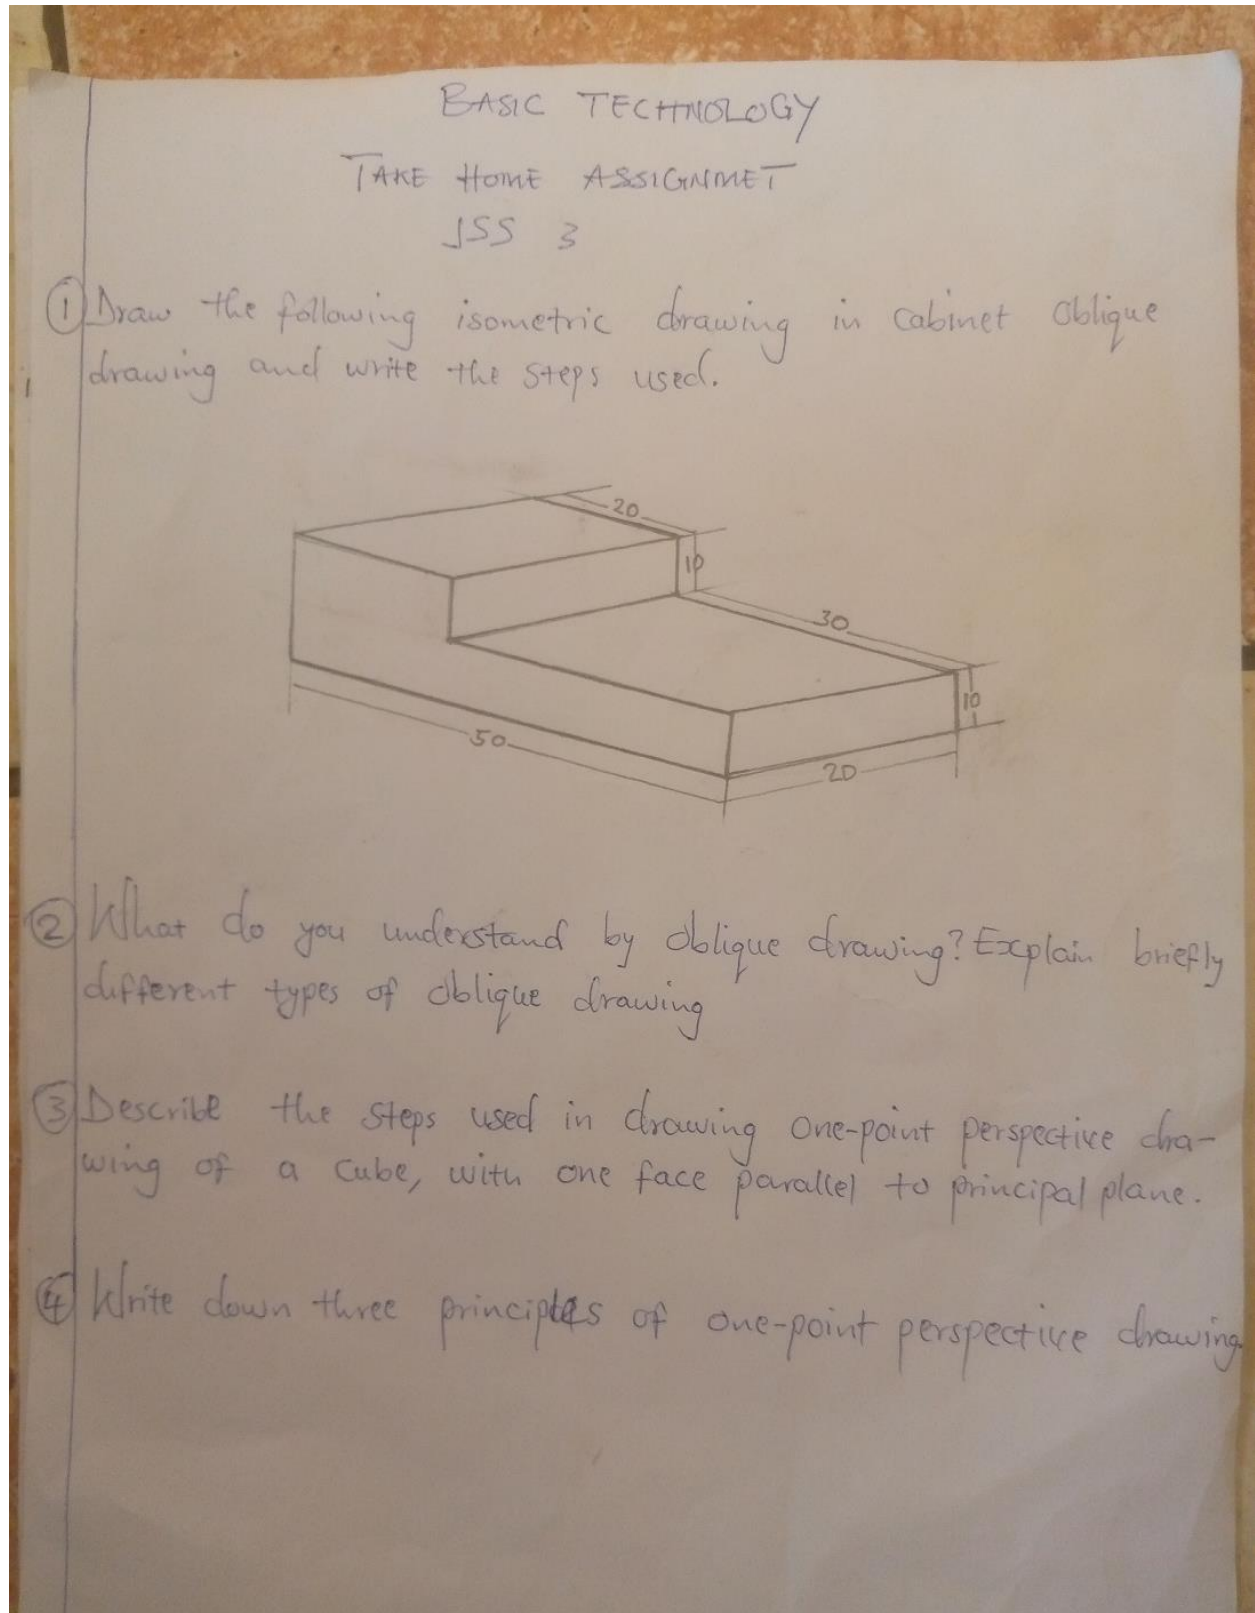 BASIC TECHNOLOGY
TAKE HOME ASSIGNMET
JSS 3
① Draw the following isometric drawing in cabinet oblique
drawing and write the steps used.
20
10
30
10
50
20
② What do you understand by oblique drawing? Explain briefly
different types of oblique drawing
③ Describe the steps used in drawing one-point perspective dra-
wing of a cube, with one face parallel to principal plane.
④ Write down three principles of one-point perspective drawing.